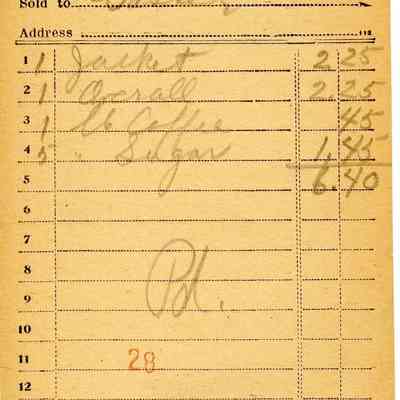 Sold to
Address 112
1 1 Jacket 2 25
2 1 Overall 2.25
3 1 lb Coffee 45
4 5 " Sugar 1.45
5 6.40
6
7
8 Pd.
9
10
11 28
12